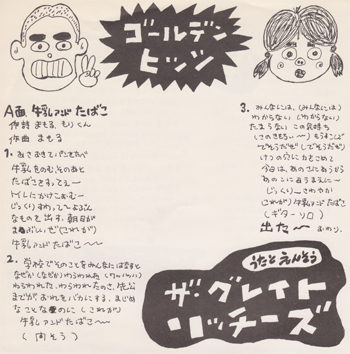 ゴールデン
ヒッツ
A面 牛乳アンド たばこ
作詩 まもる、もりくん
作曲 まもる
1. あさおきてパンをたべ
牛乳をのむ、そのあと
たばこをすって〜
トイレにかけこむ〜
じっくりすわって〜よぶん
なものを出す、朝日が
まぶしいぜ(これが)
牛乳アンド たばこ〜〜
2. 学校でそのことをみんなにはなすと
なぜか(なぜか)わらわれた
わらわれた、わらわれたのさ、先公
までが おれをバカにする、まじめ
なことなのに(これが)
牛乳アンド たばこ〜
(間そう)
3. みんなには、(みんなには)
わからない(わからない)
たまらない この気持ち
(このきもち〜)もうすぐ
でそうだぜ(でそうだぜ)
けつの穴に力をこめて
今日は、あのこにあうから
あのこにあうまえに〜
じっくり〜さわやか
(これが)牛乳アンド たばこ
(ギターソロ)
出た〜 おわり。
うたと えんそう
ザ・グレイト
リッチーズ